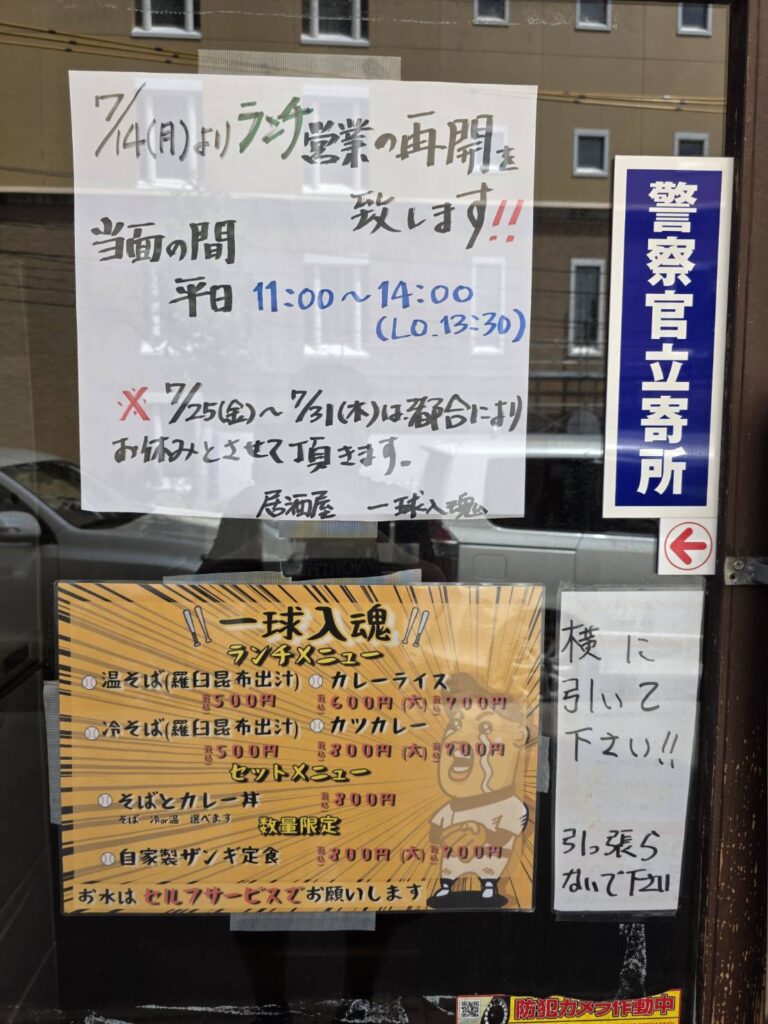 7/14(月)よりランチ営業の再開を
致します!!
当面の間
平日 11:00～14:00
(L.O.13:30)
※ 7/25(金)～7/31(木)は都合により
お休みとさせて頂きます。
居酒屋 一球入魂
警察官立寄所
一球入魂
ランチメニュー
温そば(羅臼昆布出汁)
税込500円
カレーライス
税込600円(大)税込700円
冷そば(羅臼昆布出汁)
税込500円
カツカレー
税込800円(大)税込900円
セットメニュー
そばとカレー丼 税込800円
そば 冷or温 選べます
数量限定
自家製ザンギ定食 税込800円(大)税込900円
お水はセルフサービスでお願いします
横に
引いて
下さい!!
引っ張ら
ないで下さい
防犯カメラ作動中